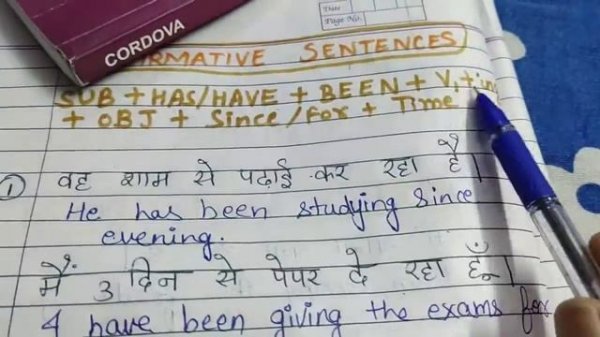 CORDOVA
Date
Page No.
RMATIVE SENTENCES
SUB + HAS/HAVE + BEEN + V₁ + in
+ OBJ + Since/For + Time
① वह शाम से पढ़ाई कर रहा है।
He has been studying since
evening.
मैं 3 दिन से पेपर दे रहा हूँ।
I have been giving the exams for